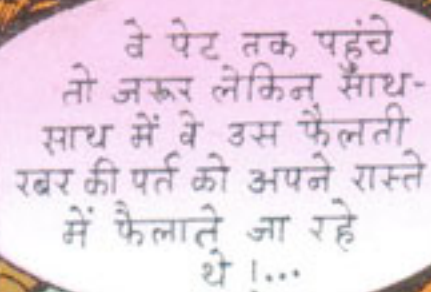 वे पेट तक पहुंचे
तो जरूर लेकिन साथ-
साथ में वे उस फैलती
रबर की पर्त को अपने रास्ते
में फैलाते जा रहे
थे !...